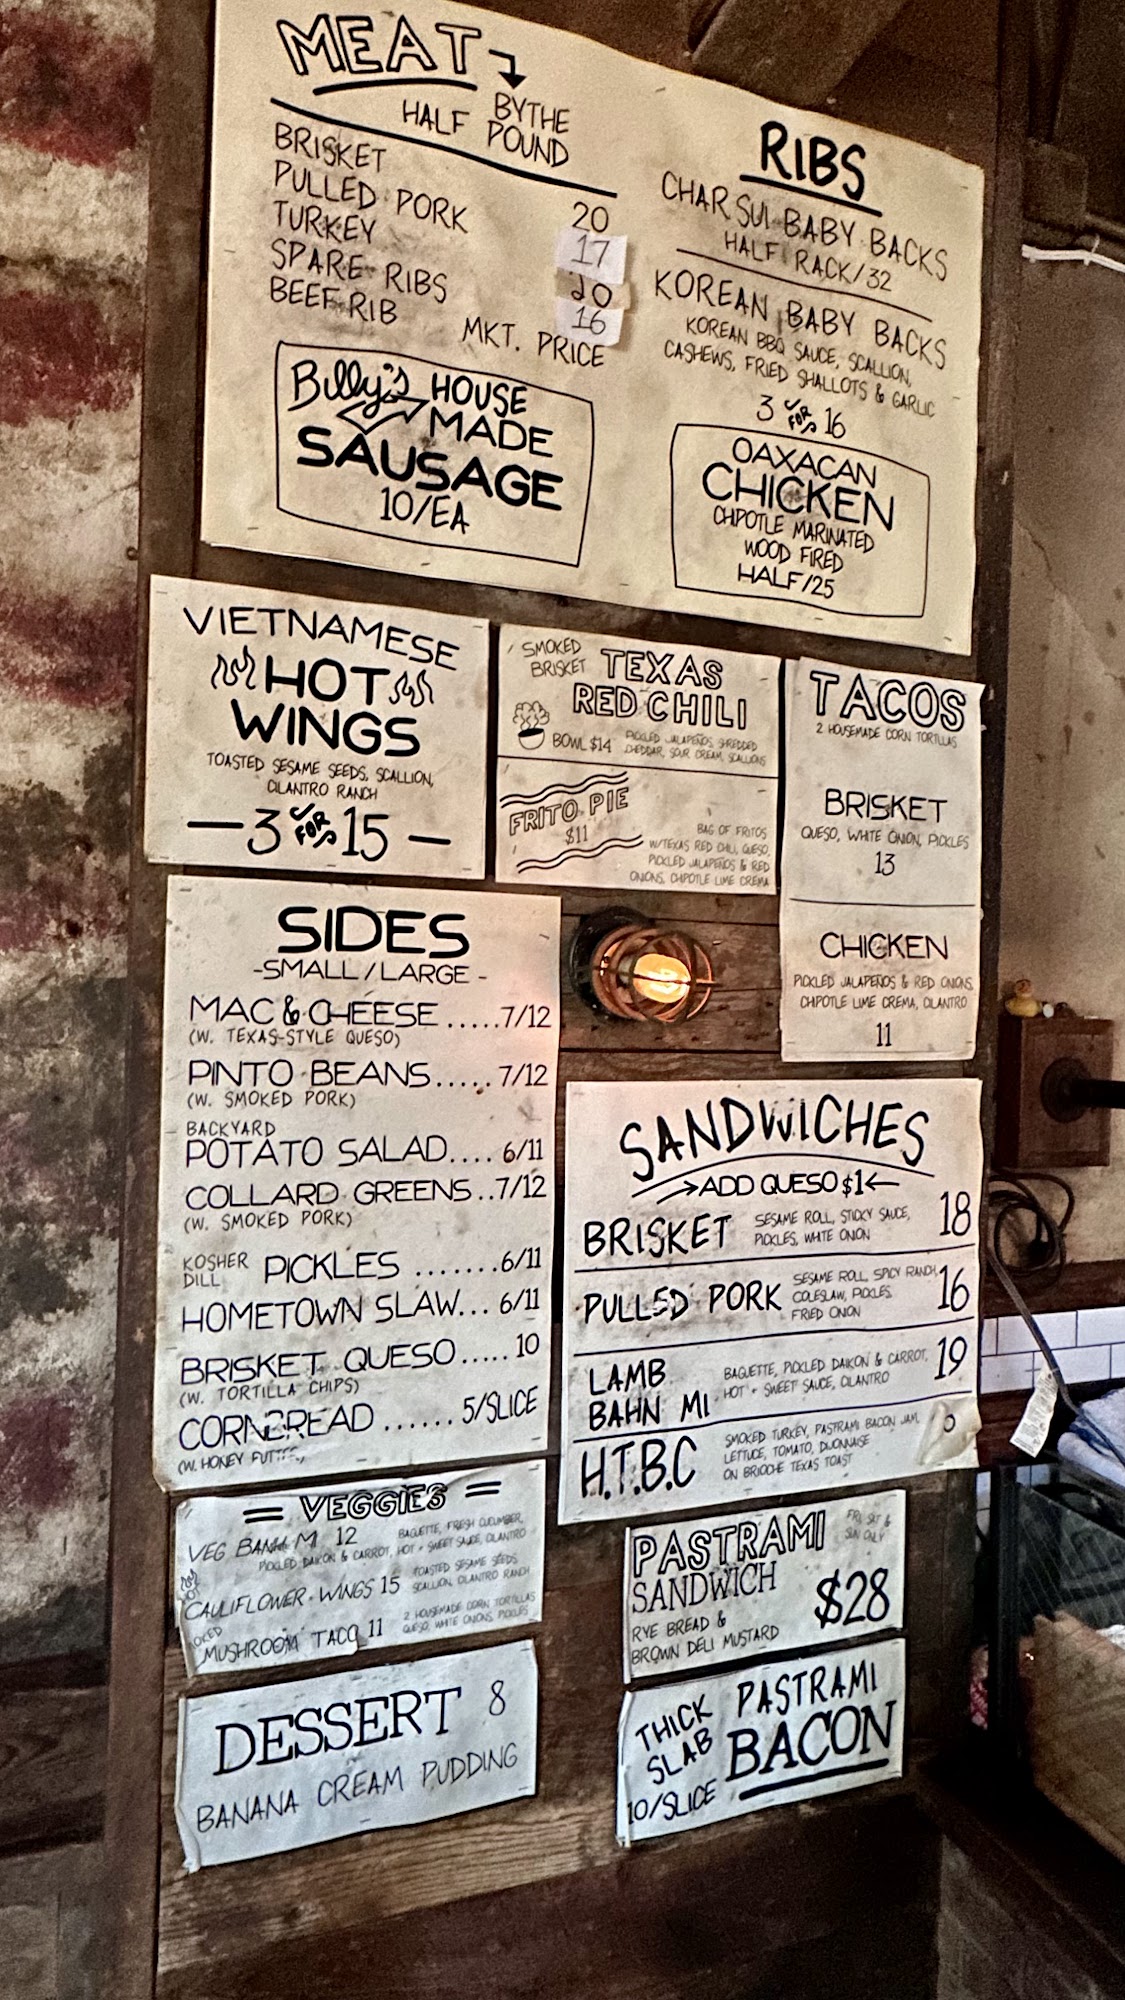 MEAT
BY THE
HALF POUND
BRISKET 20
PULLED PORK 17
TURKEY 20
SPARE RIBS 16
BEEF RIB MKT. PRICE
Billy's HOUSE
MADE
SAUSAGE
10/EA
RIBS
CHAR SUI BABY BACKS
HALF RACK/32
KOREAN BABY BACKS
KOREAN BBQ SAUCE, SCALLION,
CASHEWS, FRIED SHALLOTS & GARLIC
3 FOR 16
OAXACAN
CHICKEN
CHIPOTLE MARINATED
WOOD FIRED
HALF/25
VIETNAMESE
HOT
WINGS
TOASTED SESAME SEEDS, SCALLION,
CILANTRO RANCH
—3 FOR 15—
SMOKED
BRISKET
TEXAS
RED CHILI
BOWL $14
PICKLED JALAPEÑOS, SHREDDED
CHEDDAR, SOUR CREAM, SCALLIONS
FRITO PIE
$11
BAG OF FRITOS
W/TEXAS RED CHILI, QUESO,
PICKLED JALAPEÑOS & RED
ONIONS, CHIPOTLE LIME CREMA
TACOS
2 HOUSEMADE CORN TORTILLAS
BRISKET
QUESO, WHITE ONION, PICKLES
13
CHICKEN
PICKLED JALAPEÑOS & RED ONIONS,
CHIPOTLE LIME CREMA, CILANTRO
11
SIDES
-SMALL/LARGE-
MAC & CHEESE.....7/12
(W. TEXAS-STYLE QUESO)
PINTO BEANS.....7/12
(W. SMOKED PORK)
BACKYARD
POTATO SALAD....6/11
COLLARD GREENS..7/12
(W. SMOKED PORK)
KOSHER
DILL PICKLES .......6/11
HOMETOWN SLAW...6/11
BRISKET QUESO.....10
(W. TORTILLA CHIPS)
CORNBREAD ......5/SLICE
(W. HONEY
SANDWICHES
ADD QUESO $1
BRISKET SESAME ROLL, STICKY SAUCE, 18
PICKLES, WHITE ONION
PULLED PORK SESAME ROLL, SPICY RANCH, 16
COLESLAW, PICKLES
FRIED ONION
LAMB
BAHN MI BAGUETTE, PICKLED DAIKON & CARROT, 19
HOT + SWEET SAUCE, CILANTRO
H.T.B.C SMOKED TURKEY, PASTRAMI BACON JAM,
LETTUCE, TOMATO, DIJONNAISE
ON BRIOCHE TEXAS TOAST
= VEGGIES =
VEG BAHN MI 12 BAGUETTE, FRESH CUCUMBER,
PICKLED DAIKON & CARROT, HOT + SWEET SAUCE, CILANTRO
HOT
CAULIFLOWER WINGS 15 TOASTED SESAME SEEDS
SCALLION, CILANTRO RANCH
MUSHROOM TACO 11 2 HOUSEMADE CORN TORTILLAS
QUESO, WHITE ONIONS, PICKLES
DESSERT 8
BANANA CREAM PUDDING
PASTRAMI FRI, SAT &
SUN ONLY
SANDWICH
RYE BREAD &
BROWN DELI MUSTARD
$28
THICK
SLAB
10/SLICE
PASTRAMI
BACON